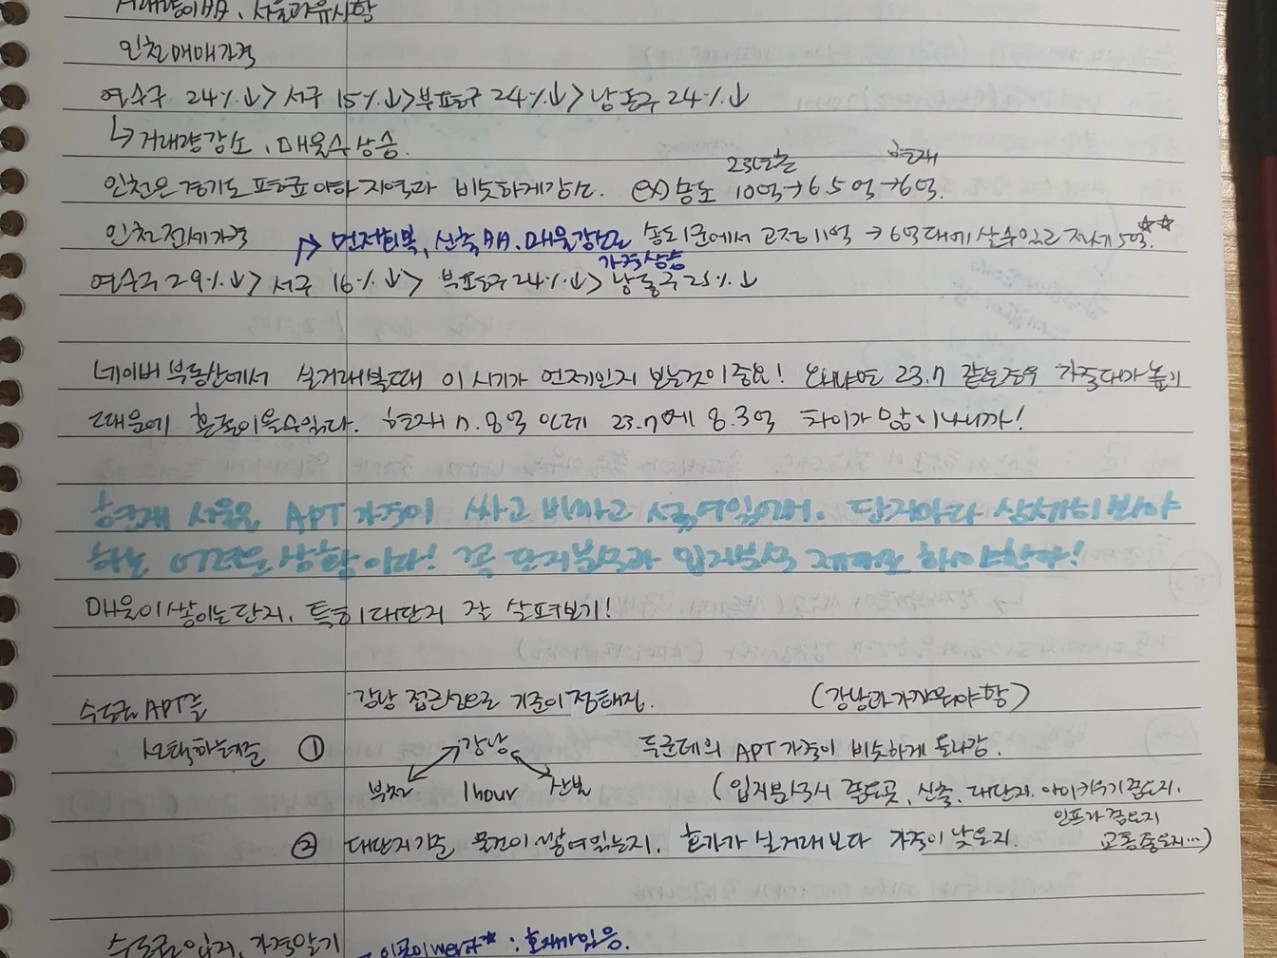 거래량이 AA, 서울과 유사함
인천 매매가격
연수구 24%↓> 서구 15%↓>부평구 24%↓> 남동구 24%↓
↳ 거래량 감소, 매물수 상승.
23년초 현재
인천은 경기도 평균이하 지역과 비슷하게 감소. ex) 송도 10억→6.5억→6억.
인천 전세가격 → 먼저회복, 신축AA, 매물감소로 가격상승 송도 1군에서 고점 11억 → 6억대에 살수있고 전세 5억.☆☆
연수구 29%↓> 서구 16%↓> 부평구 24%↓> 남동구 25%↓
네이버 부동산에서 실거래 볼때 이 시기가 언제인지 보는것이 중요! 왜냐면 23.7 같은경우 가격대가 높기
때문에 혼동이 올수있다. 현재 7.8억 인데 23.7에 8.3억 차이가 많이 나니까!
현재 서울은 APT 가격이 싸고 비싸고 섞여있어서. 단지마다 상세히 봐야
하는 어려운 상황이다! 꼭 단지분석과 입지분석 제대로 해야한다!
매물이 쌓이는 단지, 특히 대단지 잘 살펴보기!
수도권 APT를 강남 접근성으로 기준이 정해짐. (강남과 가까워야함)
선택하는기준 ① 강남 두군데의 APT 가격이 비슷하게 올라감.
부천 1hour 산본 (입지분석시 좋은곳, 신축, 대단지, 아이키우기 좋은지,
인프라 좋은지
② 대단지 기준 물건이 쌓여있는지, 호가가 실거래보다 가격이 낮은지. 교통좋은지…)
수도권 입지, 가격알기